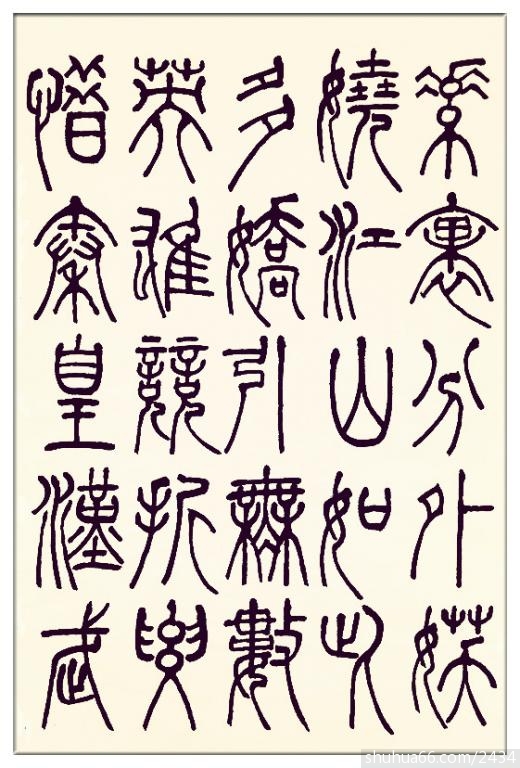 素裹分外妖
嬈江山如此
多嬌引無數
英雄競折腰
惜秦皇漢武
shuhua66.com/2434